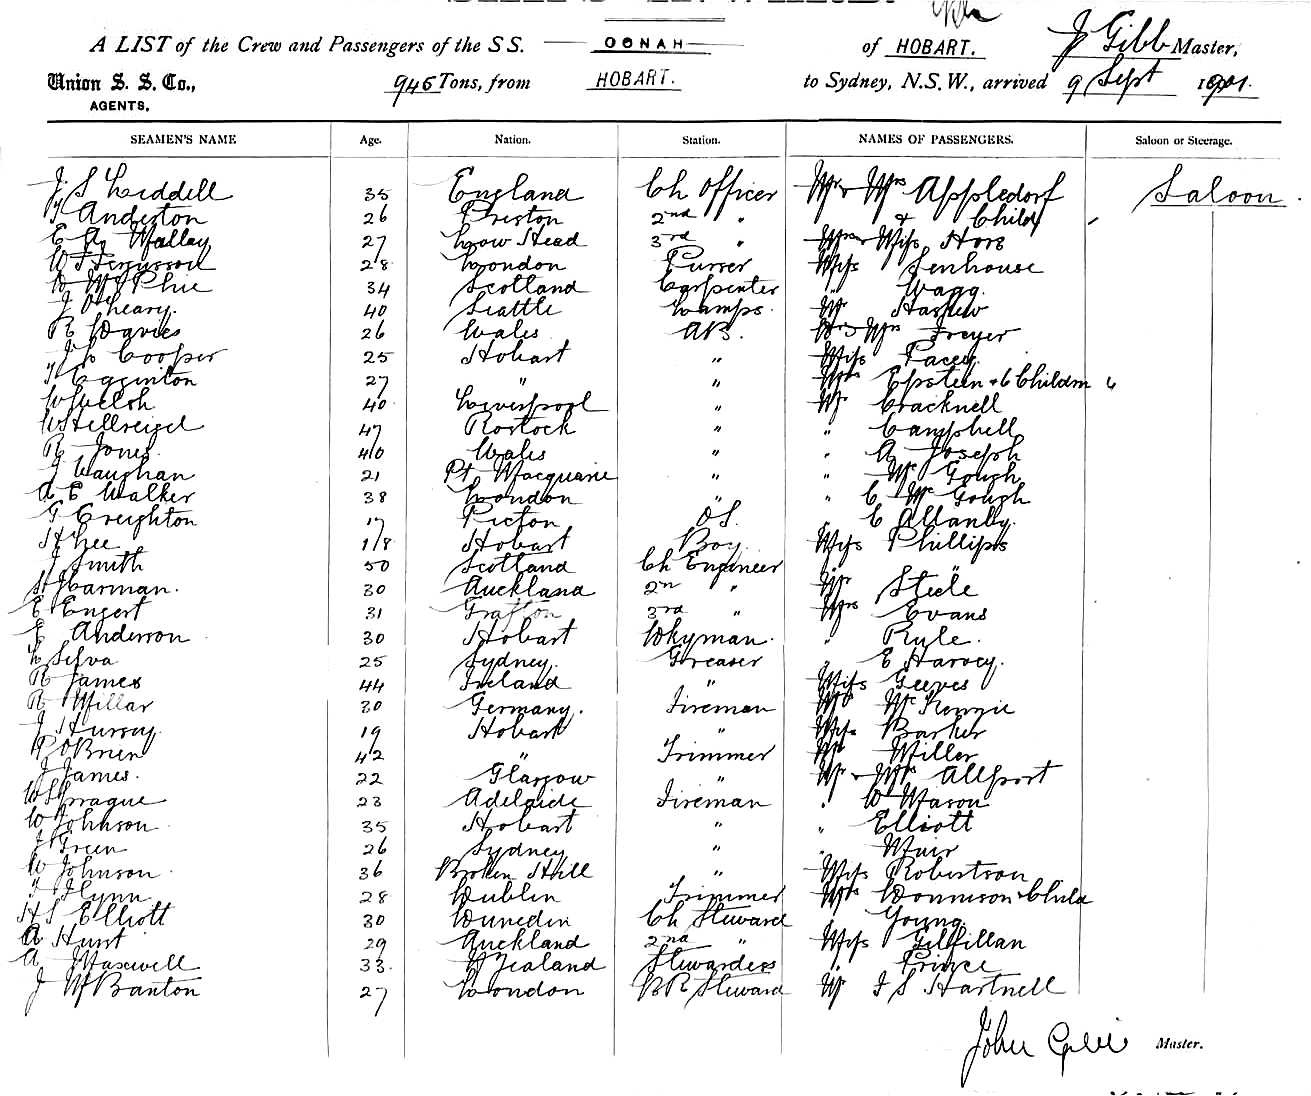 A LIST of the Crew and Passengers of the S S. OONAH of HOBART. J Gibb Master,
Union S. S. Co., AGENTS, 945 Tons, from HOBART. to Sydney, N.S.W., arrived 9 Sept 1901.
SEAMEN'S NAME Age. Nation. Station. NAMES OF PASSENGERS. Saloon or Steerage.
J S Liddell 35 England Ch Officer Mr & Mrs Appledorf Saloon
Anderton 26 Preston 2nd " & Child
E A Malley 27 Low Head 3rd " Miss Hore
W Fergusson 28 London Purser Miss Senhouse
McPhie 34 Scotland Carpenter " Wagg.
J O'Leary. 40 Seattle Lamps. Mr
R Davies 26 Wales AB. Mr & Mrs Freyer
Cooper 25 Hobart " Miss Pacey
Eaginton 27 " " Mrs Epstein & 6 Childrn "
W Welsh 40 Liverpool " Mr Cracknell
W Hellreigel 47 Rostock " " Campbell
R Jones. 40 Wales " " A Joseph
J Vaughan 21 Pt Macquarie " " McGough
A E Walker 38 London " " C McGough
G Creighton 17 Picton OS. " C Allanby.
H Lee 18 Hobart Boy. Miss Phillips
J Smith 50 Scotland Ch Engineer
Harman. 30 Auckland 2nd " Mr Steele
E Engert 31 Grafton 3rd " Mrs Evans
Anderson 30 Hobart Dkyman. " Ryle.
L Silva 25 Sydney. Greaser " E Harvey.
R James 44 Ireland " Miss Geeves
R Millar 30 Germany. Fireman McKenzie
J Hurrey 19 Hobart " Miss Barker
P O'Brien 42 " Trimmer Mr Miller
J James. 22 Glasgow " Mr & Mrs Allport
W Sprague 23 Adelaide Fireman " W Mason
W Johnson 35 Hobart " " Elliott
J Green 26 Sydney " " Muir
W Johnson. 36 Broken Hill " Miss Robertson
Flynn 28 Dublin Trimmer Mrs Donnison & Child
H S Elliott 30 Dunedin Ch Steward " Young.
A Hunt 29 Auckland 2nd " Miss Gillfillan
A Maxwell 33. N Zealand Stewardess " Prince
J McBanton 27 London BR Steward Mr J S Hartnell
John Gibb Master.